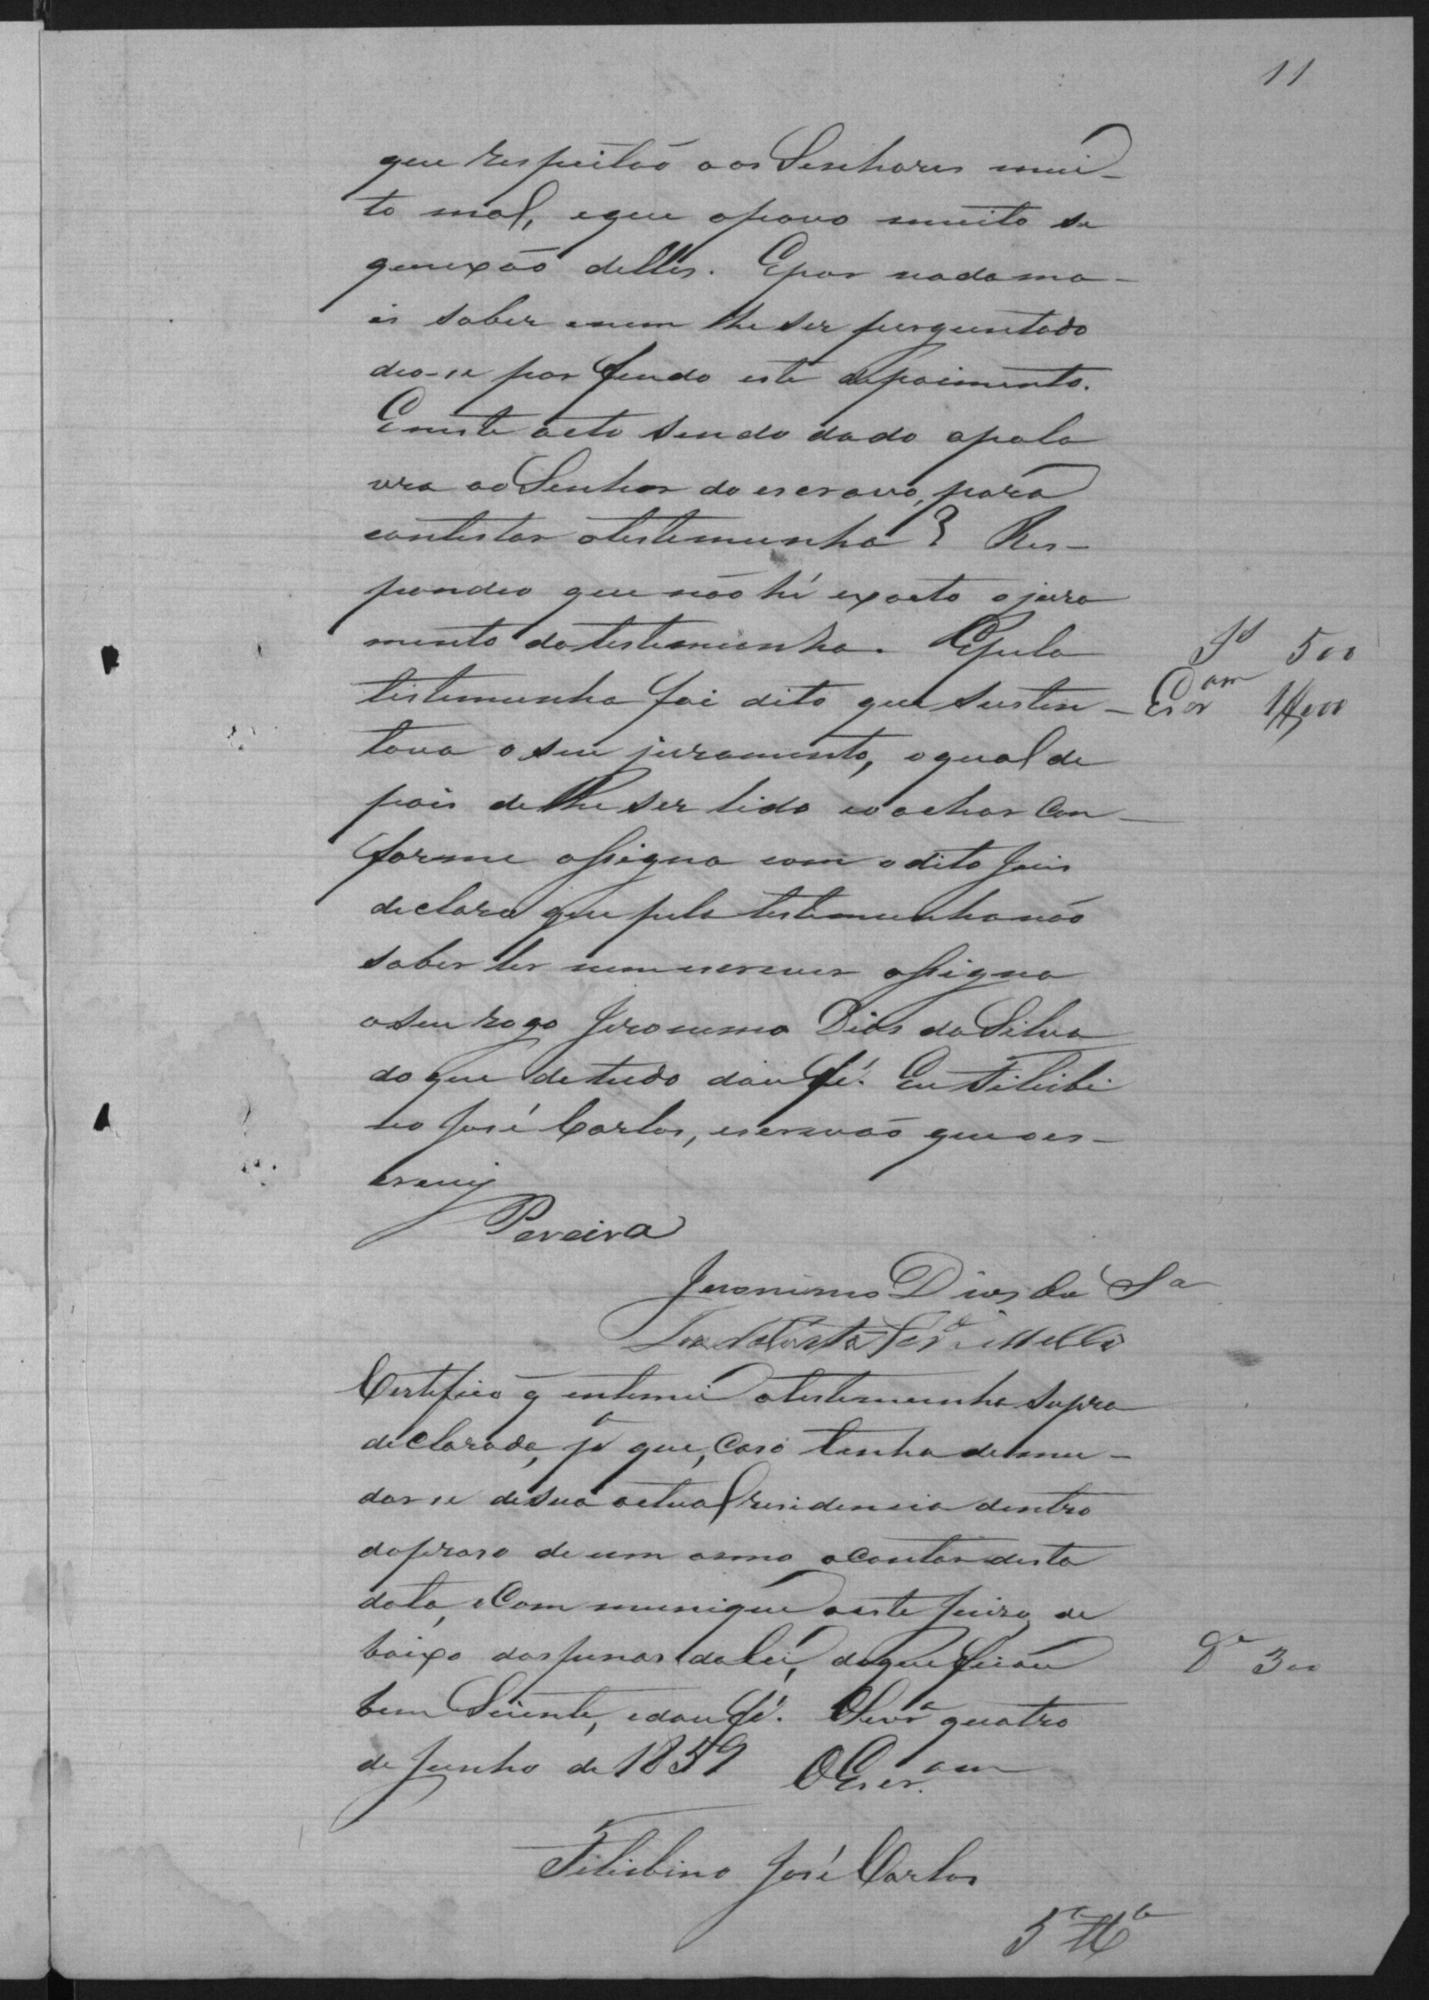 11
que respeitão aos Senhores mui-
to mal, e que o povo muito se
queixão delles. E por nada ma-
is saber e nem lhe ser perguntado
deo-se por findo este depoimento.
E neste acto sendo dado a pala
vra ao Senhor do escravo, para
contestar a testemunha? Res-
pondeo que não hé exacto o jura
mento da testemunha. E pela
Js 500
testemunha foi dito que susten-
Escram
tava o seu juramento, o qual de
pois de lhe ser lido e o achar Con-
forme assigna com o dito Juis
declaro que pela testemunha não
saber ler nem escrever assigna
a seu rogo Jeronimo Dias da Silva
do que de tudo dou fé. Eu Filisbi
no José Carlos, escrivão que o es-
crevij
Pereira
Jeronimo Dias da Sa
Certifico q intimei a testemunha supra
declarada, pa que, Caso tenha de mu-
dar-se de sua actual residencia dentro
do praso de um anno a Contar desta
data, o Communique a este Juizo, de
baixo das penas da lei, do que ficou
De 300
bem Siente, e dou fé. quatro
de Junho de 1859 O Escram
Filisbino José Carlos
5a Ta